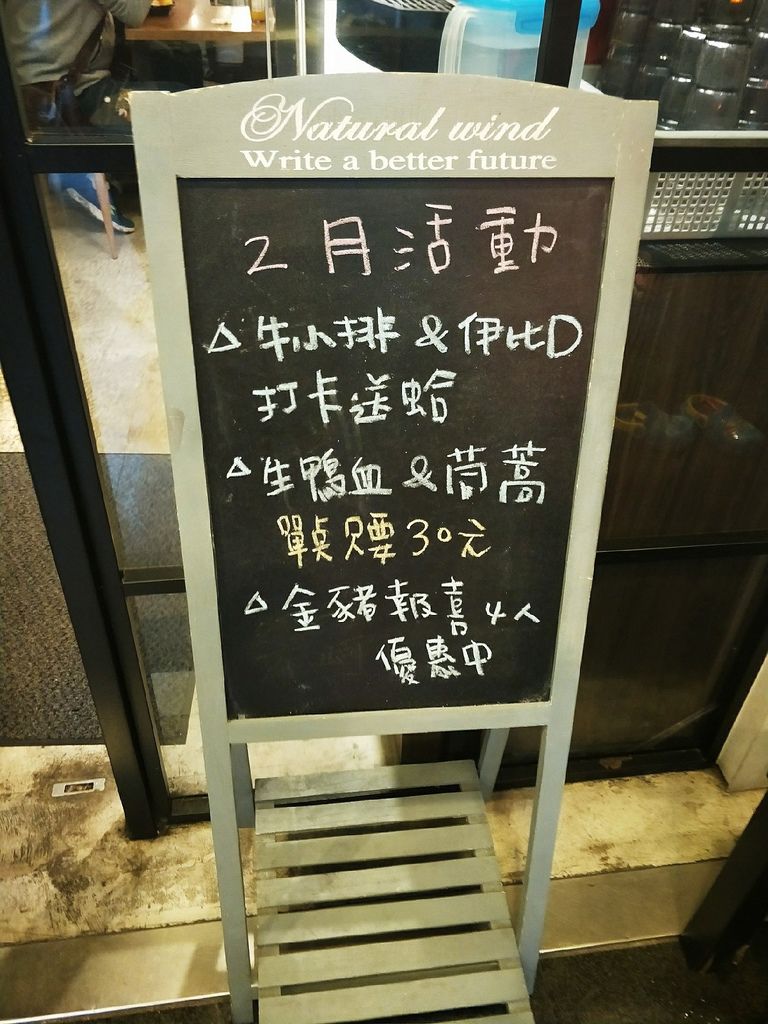 Natural wind
Write a better future
2月活動
△牛小排&伊比D
打卡送蛤
△生鴨血&茼蒿
單點只要30元
△金豬報喜4人
優惠中